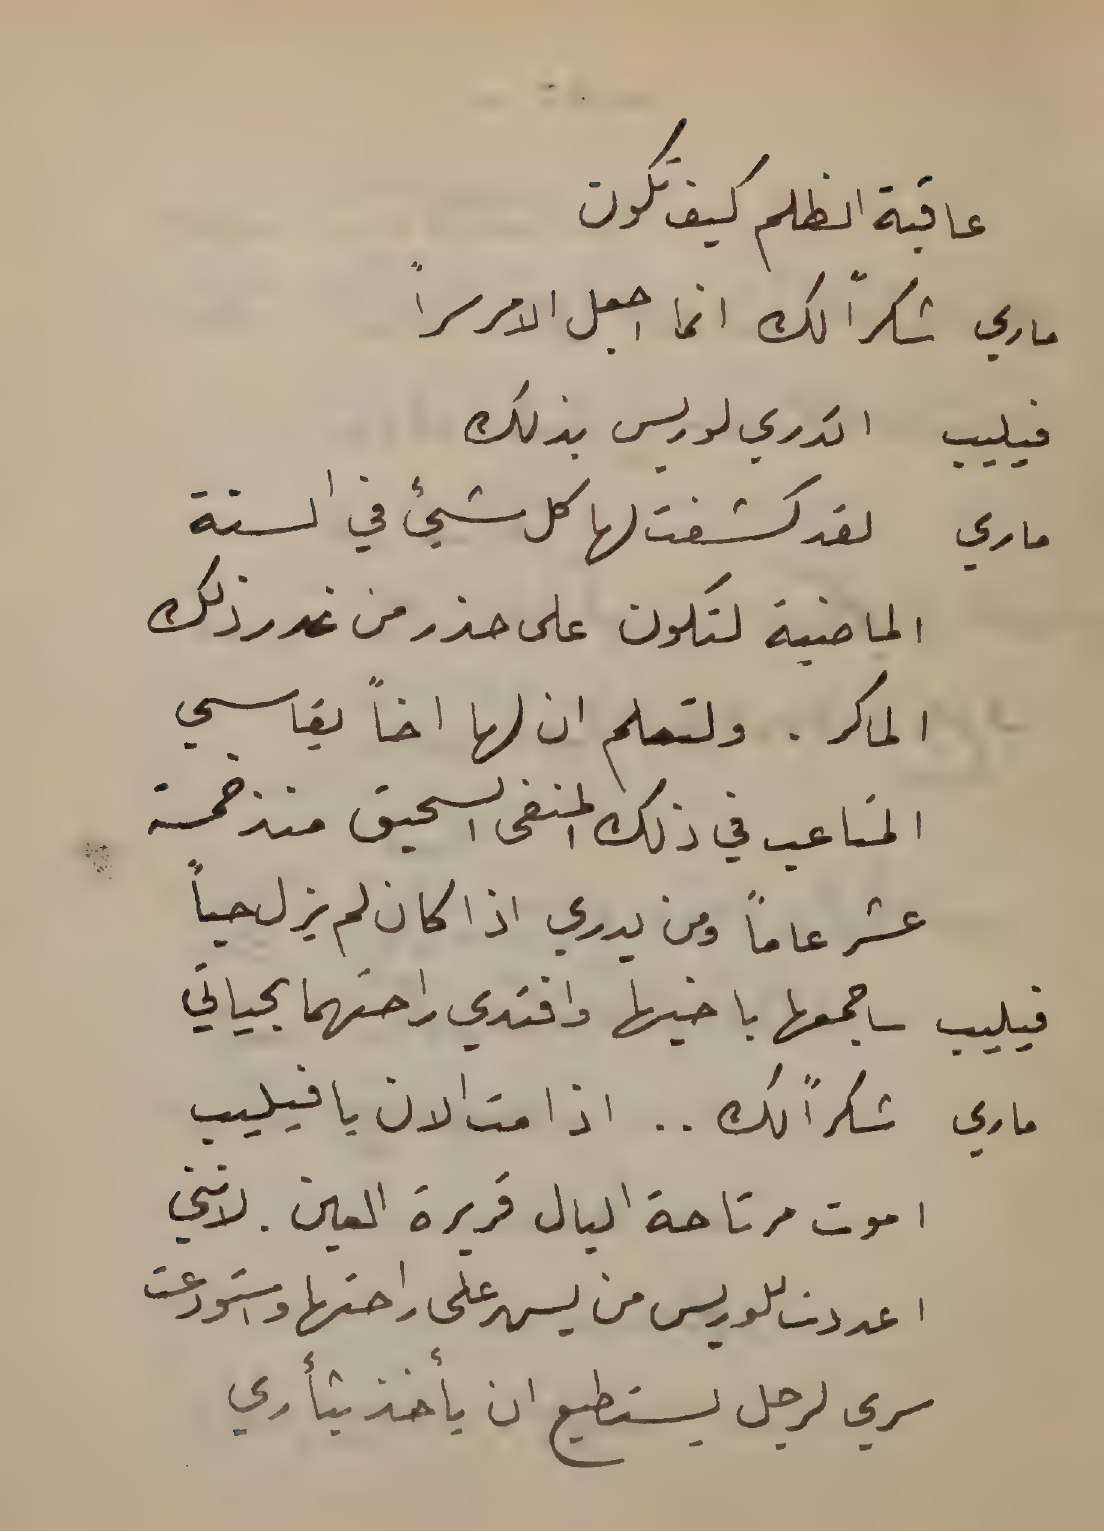 عاقبة الظلم كيف تكون
ماري شكراً لك انما اجعل الامر سراً
فيليب اتدري لوريس بذلك
ماري لقد كشفت لها كل شيئ في السنة
الماضية لتكون على حذر من غدر ذلك
الماكر . ولتعلم ان لها اخاً يقاسي
المتاعب في ذلك المنفى السحيق منذ خمسة
عشر عاماً ومن يدري اذا كان لم يزل حياً
فيليب ساجمعها باخيها وافتدي راحتهما بحياتي
ماري شكراً لك .. اذا مت الان يا فيليب
اموت مرتاحة البال قريرة العين . لانني
اعددت للوريس من يسهر على راحتها واستودعت
سري لرجل يستطيع ان يأخذ بثأري